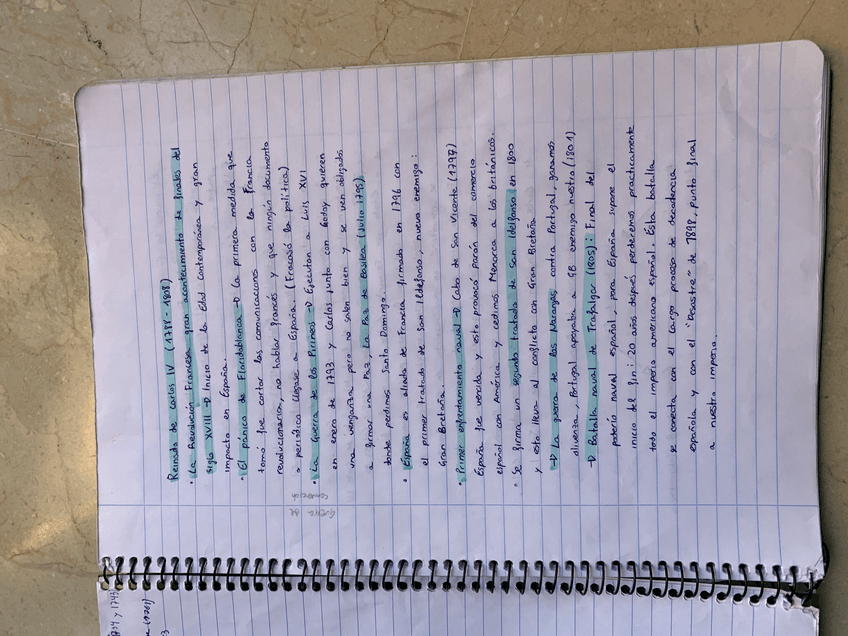 Reinado de Carlos IV (1788 - 1808)
· La Revolución Francesa gran acontecimiento de finales del
siglo XVIII → Inicio de la Edad Contemporánea y gran
impacto en España.
· El pánico de Floridablanca → La primera medida que
tomó fue cortar las comunicaciones con la Francia
revolucionaria, no hablar francés y que ningún documento
o periódico llegase a España. (Fracasó la política)
· La Guerra de los Pirineos → Ejecutan a Luis XVI
en enero de 1793 y Carlos junto con Godoy quieren
una venganza pero no salen bien y se ven obligados
a firmar una paz, La Paz de Basilea (Julio 1795),
donde perdimos Santo Domingo.
· España es aliada de Francia firmado en 1796 con
el primer tratado de San Ildefonso, nuevo enemigo:
Gran Bretaña.
· Primer enfrentamiento naval → Cabo de San Vicente (1797)
España fue vencida y esto provocó parón del comercio
español con América y cedimos Menorca a los británicos.
· Se firma un segundo tratado de San Idelfonso en 1800
y esto lleva al conflicto con Gran Bretaña
→ La guerra de las Naranjas contra Portugal, ganamos
olivenza, Portugal apoyaba a GB enemiga nuestra (1801)
→ Batalla naval de Trafalgar (1805): Final del
poderío naval español, para España supone el
inicio del fin: 20 años después perderemos prácticamente
todo el imperio americano español. Esta batalla
se conecta con el largo proceso de decadencia
española y con el "Desastre" de 1898, punto final
a nuestro imperio.
Guerra de
y 1743
(1761)